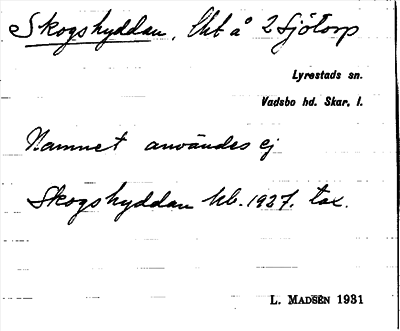 Skogshyddan, lht å 2 Sjötorp
Lyrestads sn.
Vadsbo hd. Skar. l.
Namnet användes ej
Skogshyddan hb. 1927. tax.
L. MADSÉN 1931